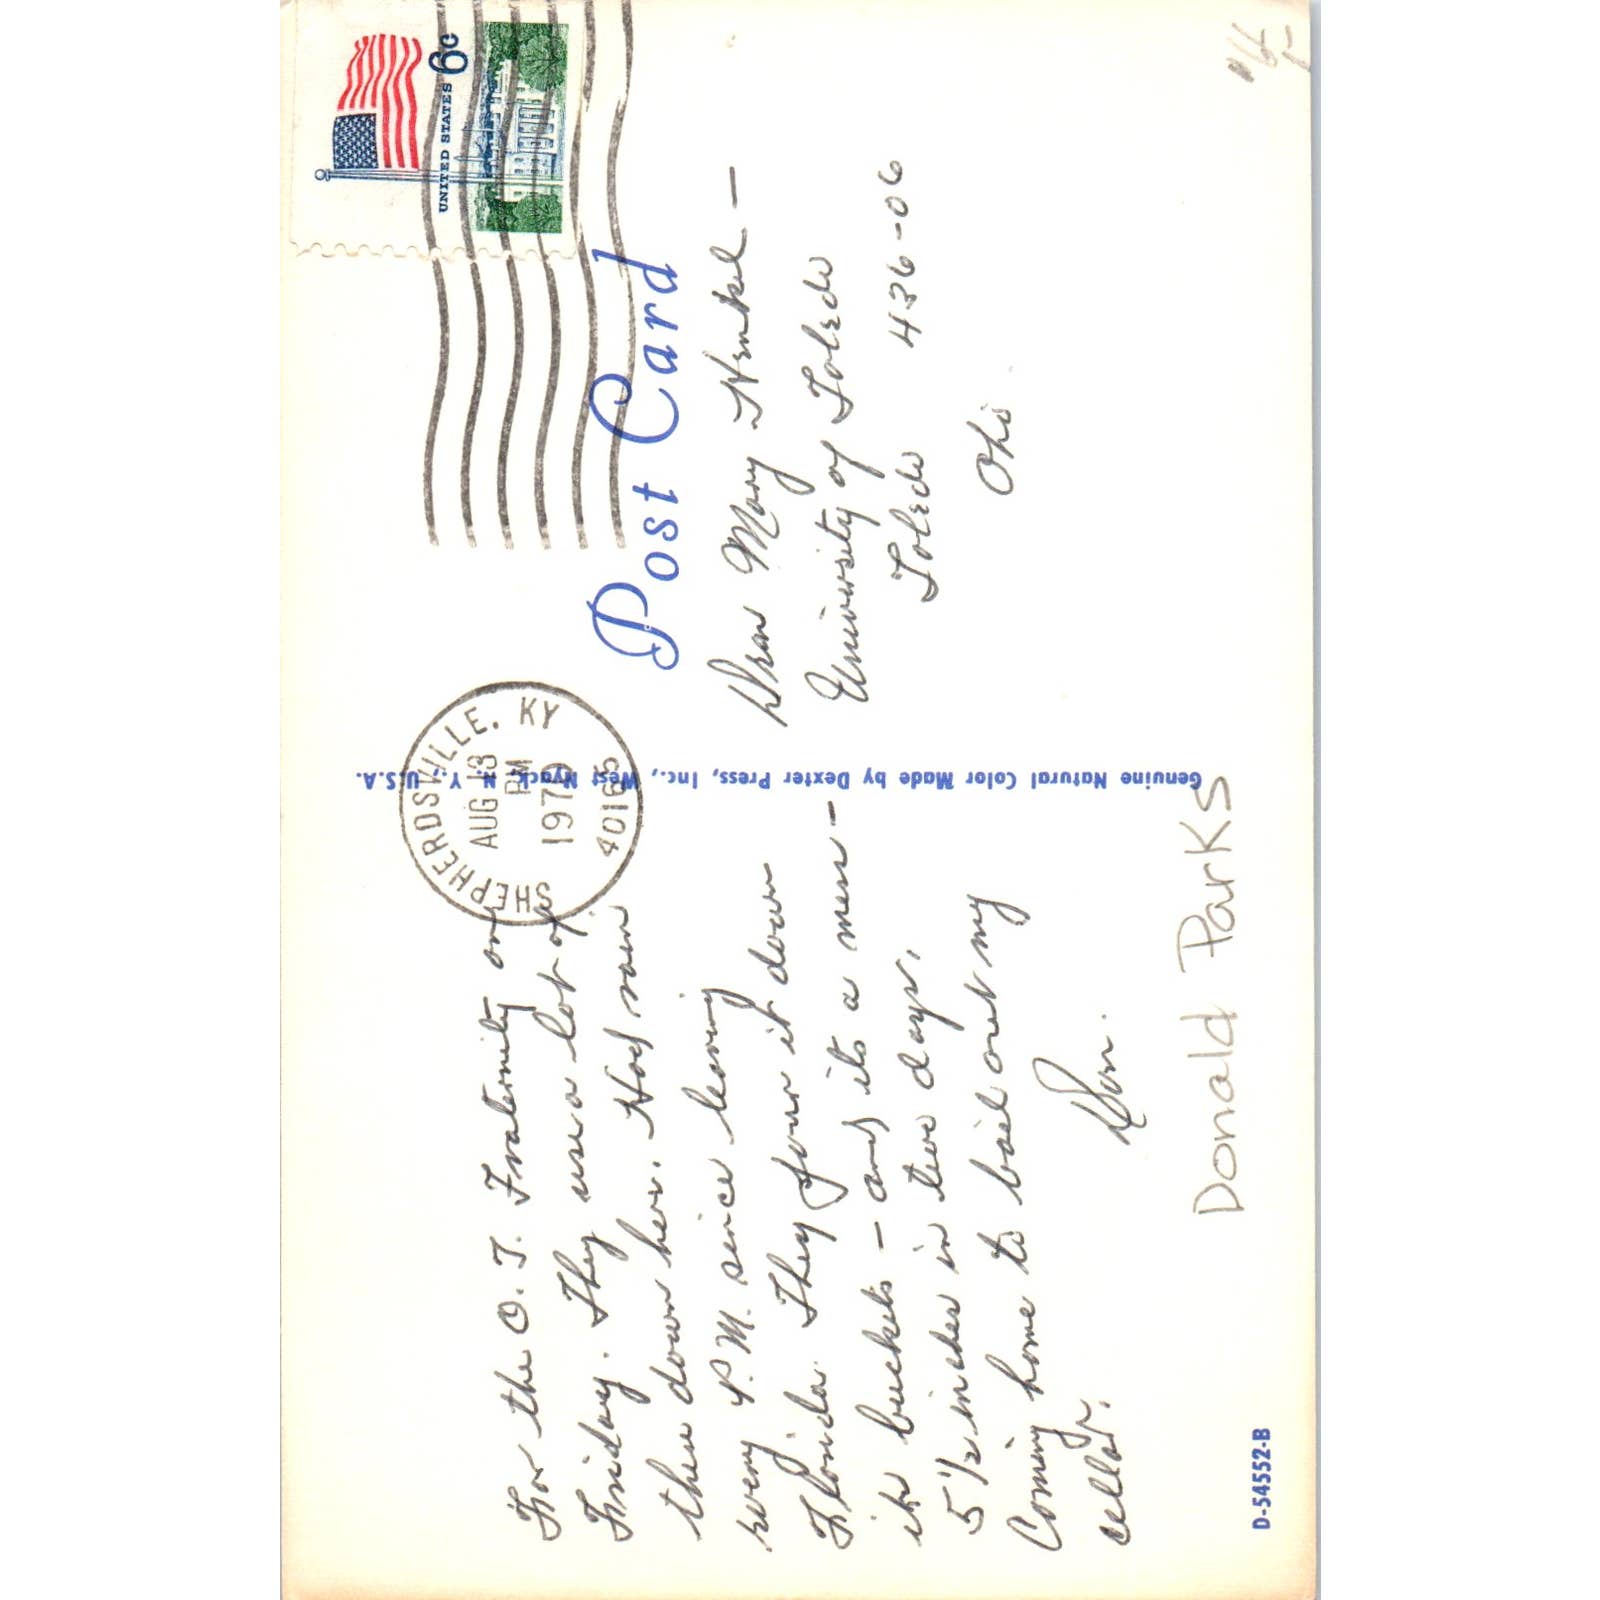 For the O. T. Fraternity on
Friday. They use a lot of
them down here. Had rain
every P.M. since leaving
Florida. They pour it down
in buckets - and its a mess -
5 1/2 inches in two days.
Coming home to bail out my
cellar.
Don.
Donald Parks
D-54552-B
Genuine Natural Color Made by Dexter Press, Inc., West Nyack, N. Y., U.S.A.
SHEPHERDSVILLE, KY
AUG 13
PM
1970
40165
UNITED STATES 6c
Post Card
Dean Mary Henkel -
University of Toledo
Toledo 436-06
Ohio